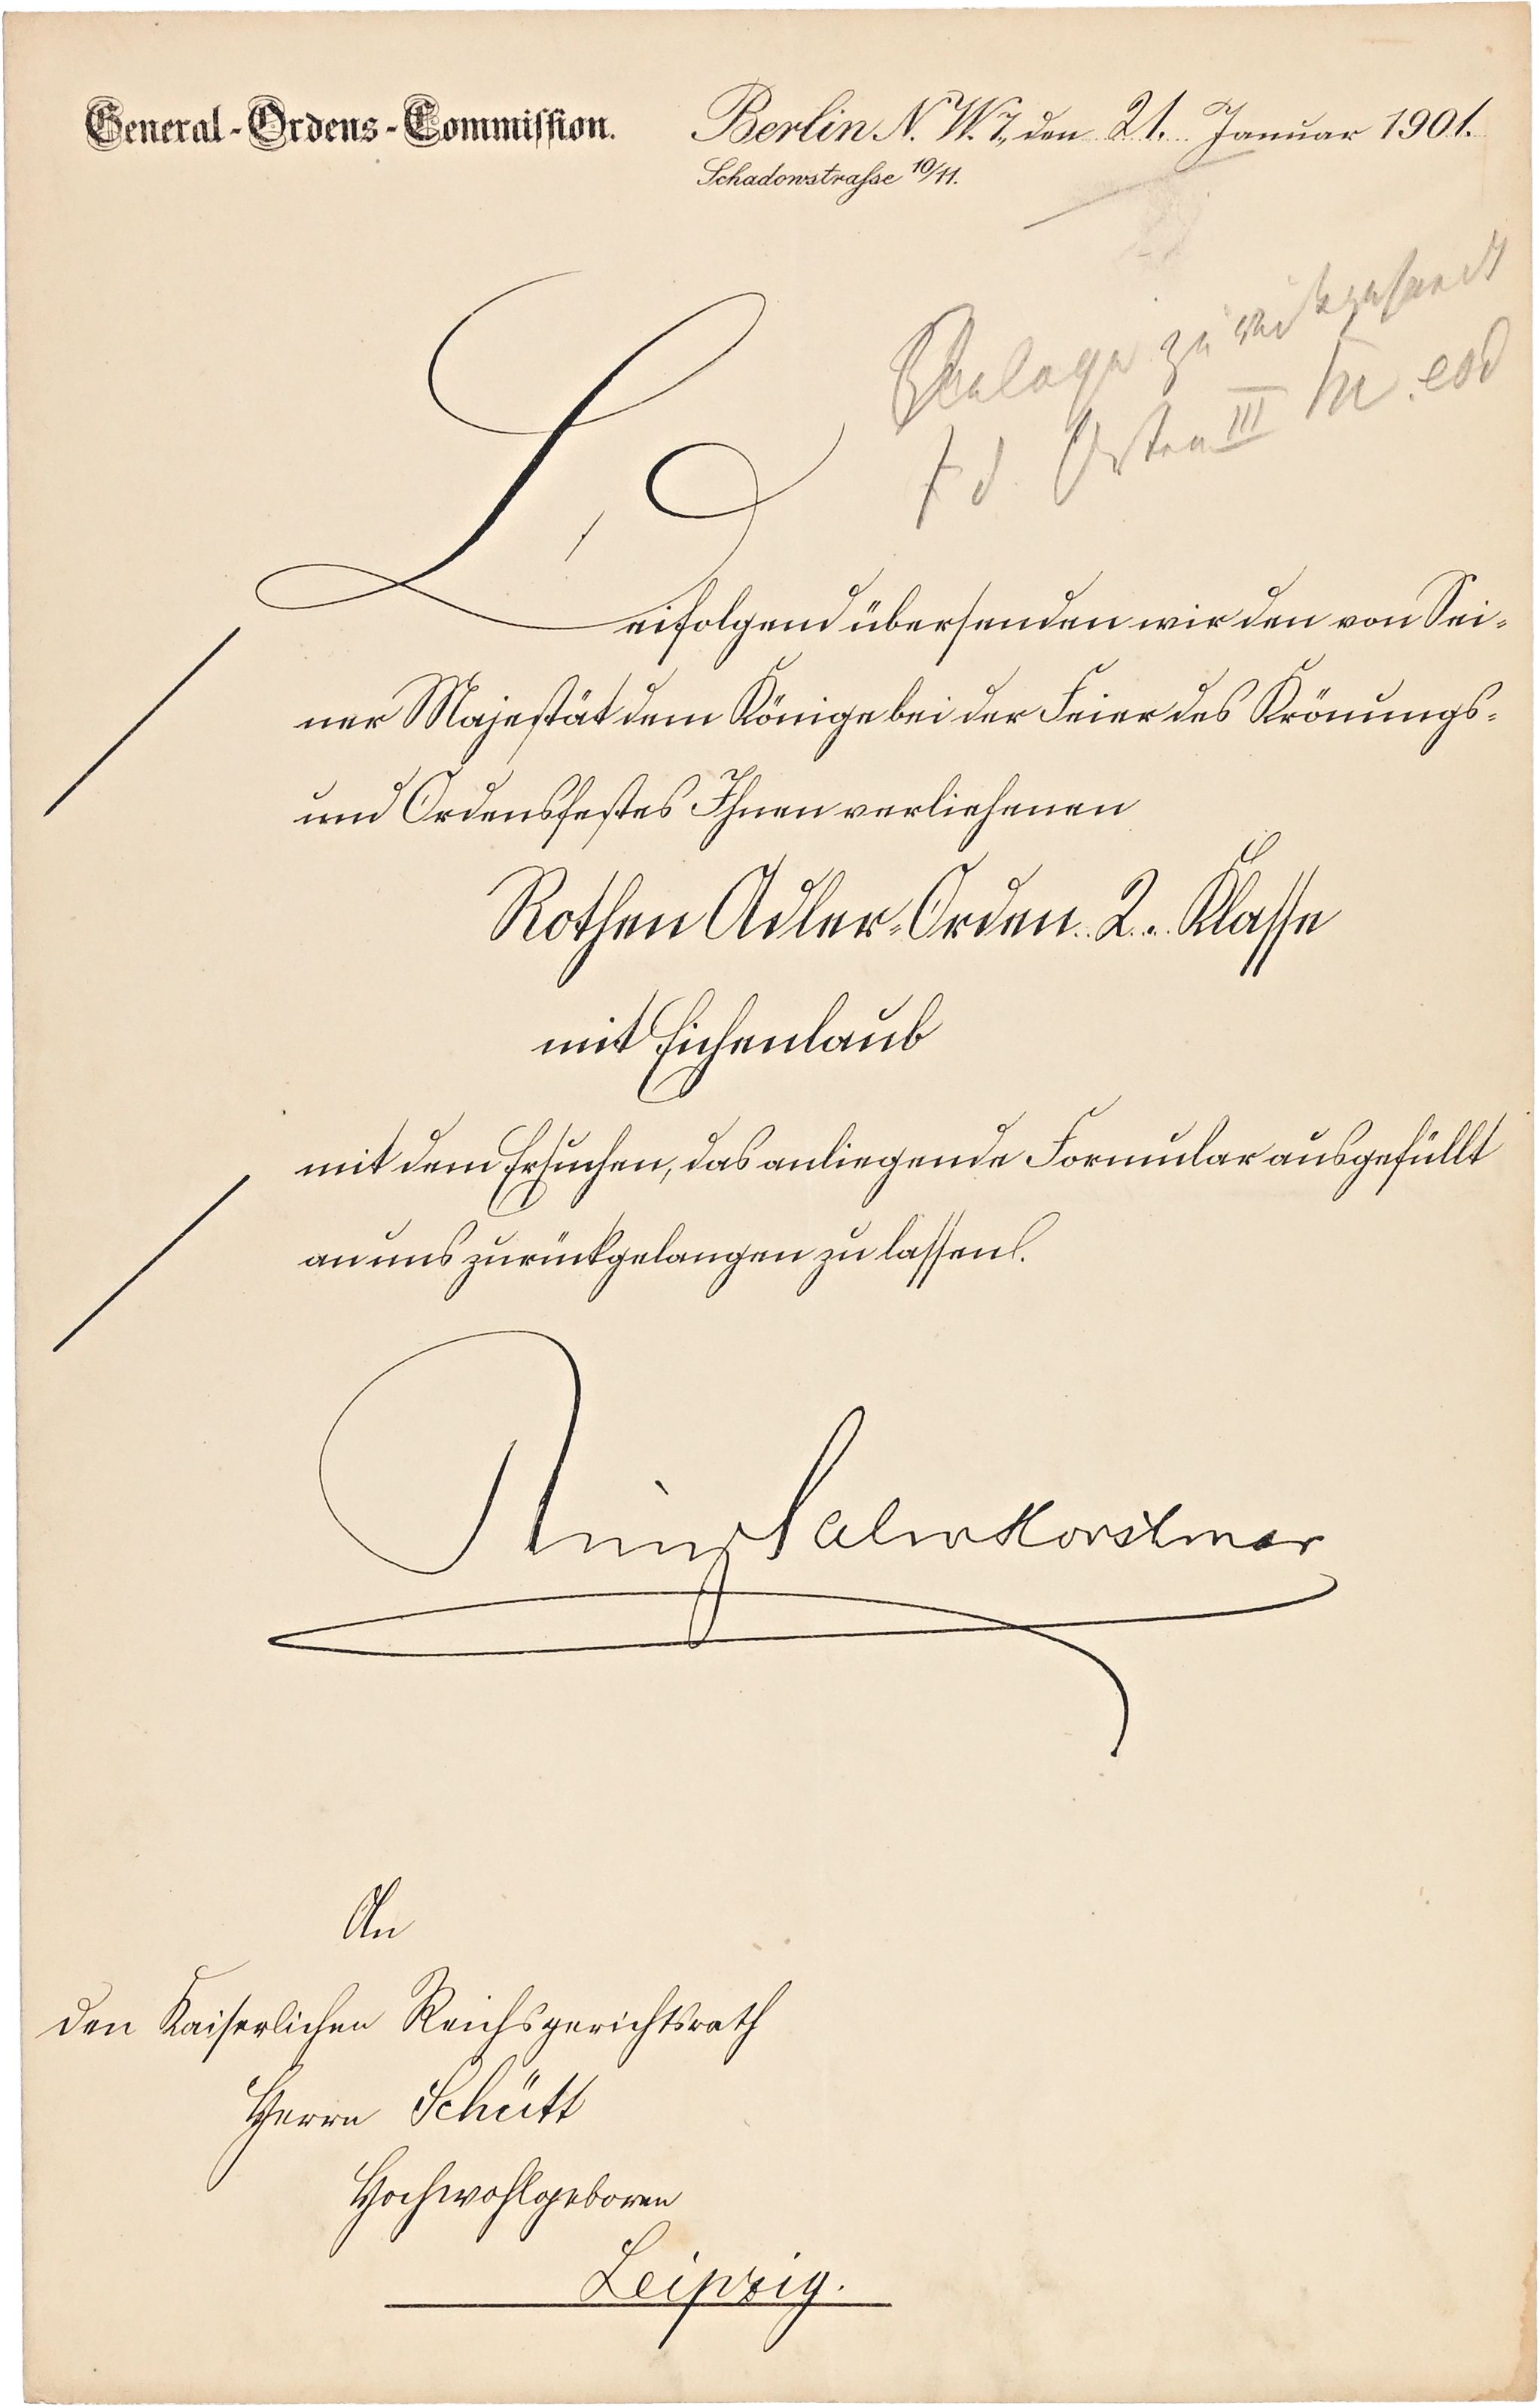 General-Ordens-Commission.
Berlin N. W. 7, den 21. Januar 1901.
Schadowstrasse 10/11.
zurückgesandt
III
Beifolgend übersenden wir den von Sei-
ner Majestät dem Könige bei der Feier des Krönungs-
und Ordensfestes Ihnen verliehenen
Rothen Adler-Orden 2. Klasse
mit Eichenlaub
mit dem Ersuchen, das anliegende Formular ausgefüllt
an uns zurückgelangen zu lassen.
Prinz Salm Horstmar
An
den Kaiserlichen Reichsgerichtsrath
Herrn Schütt
Hochwohlgeboren
Leipzig.